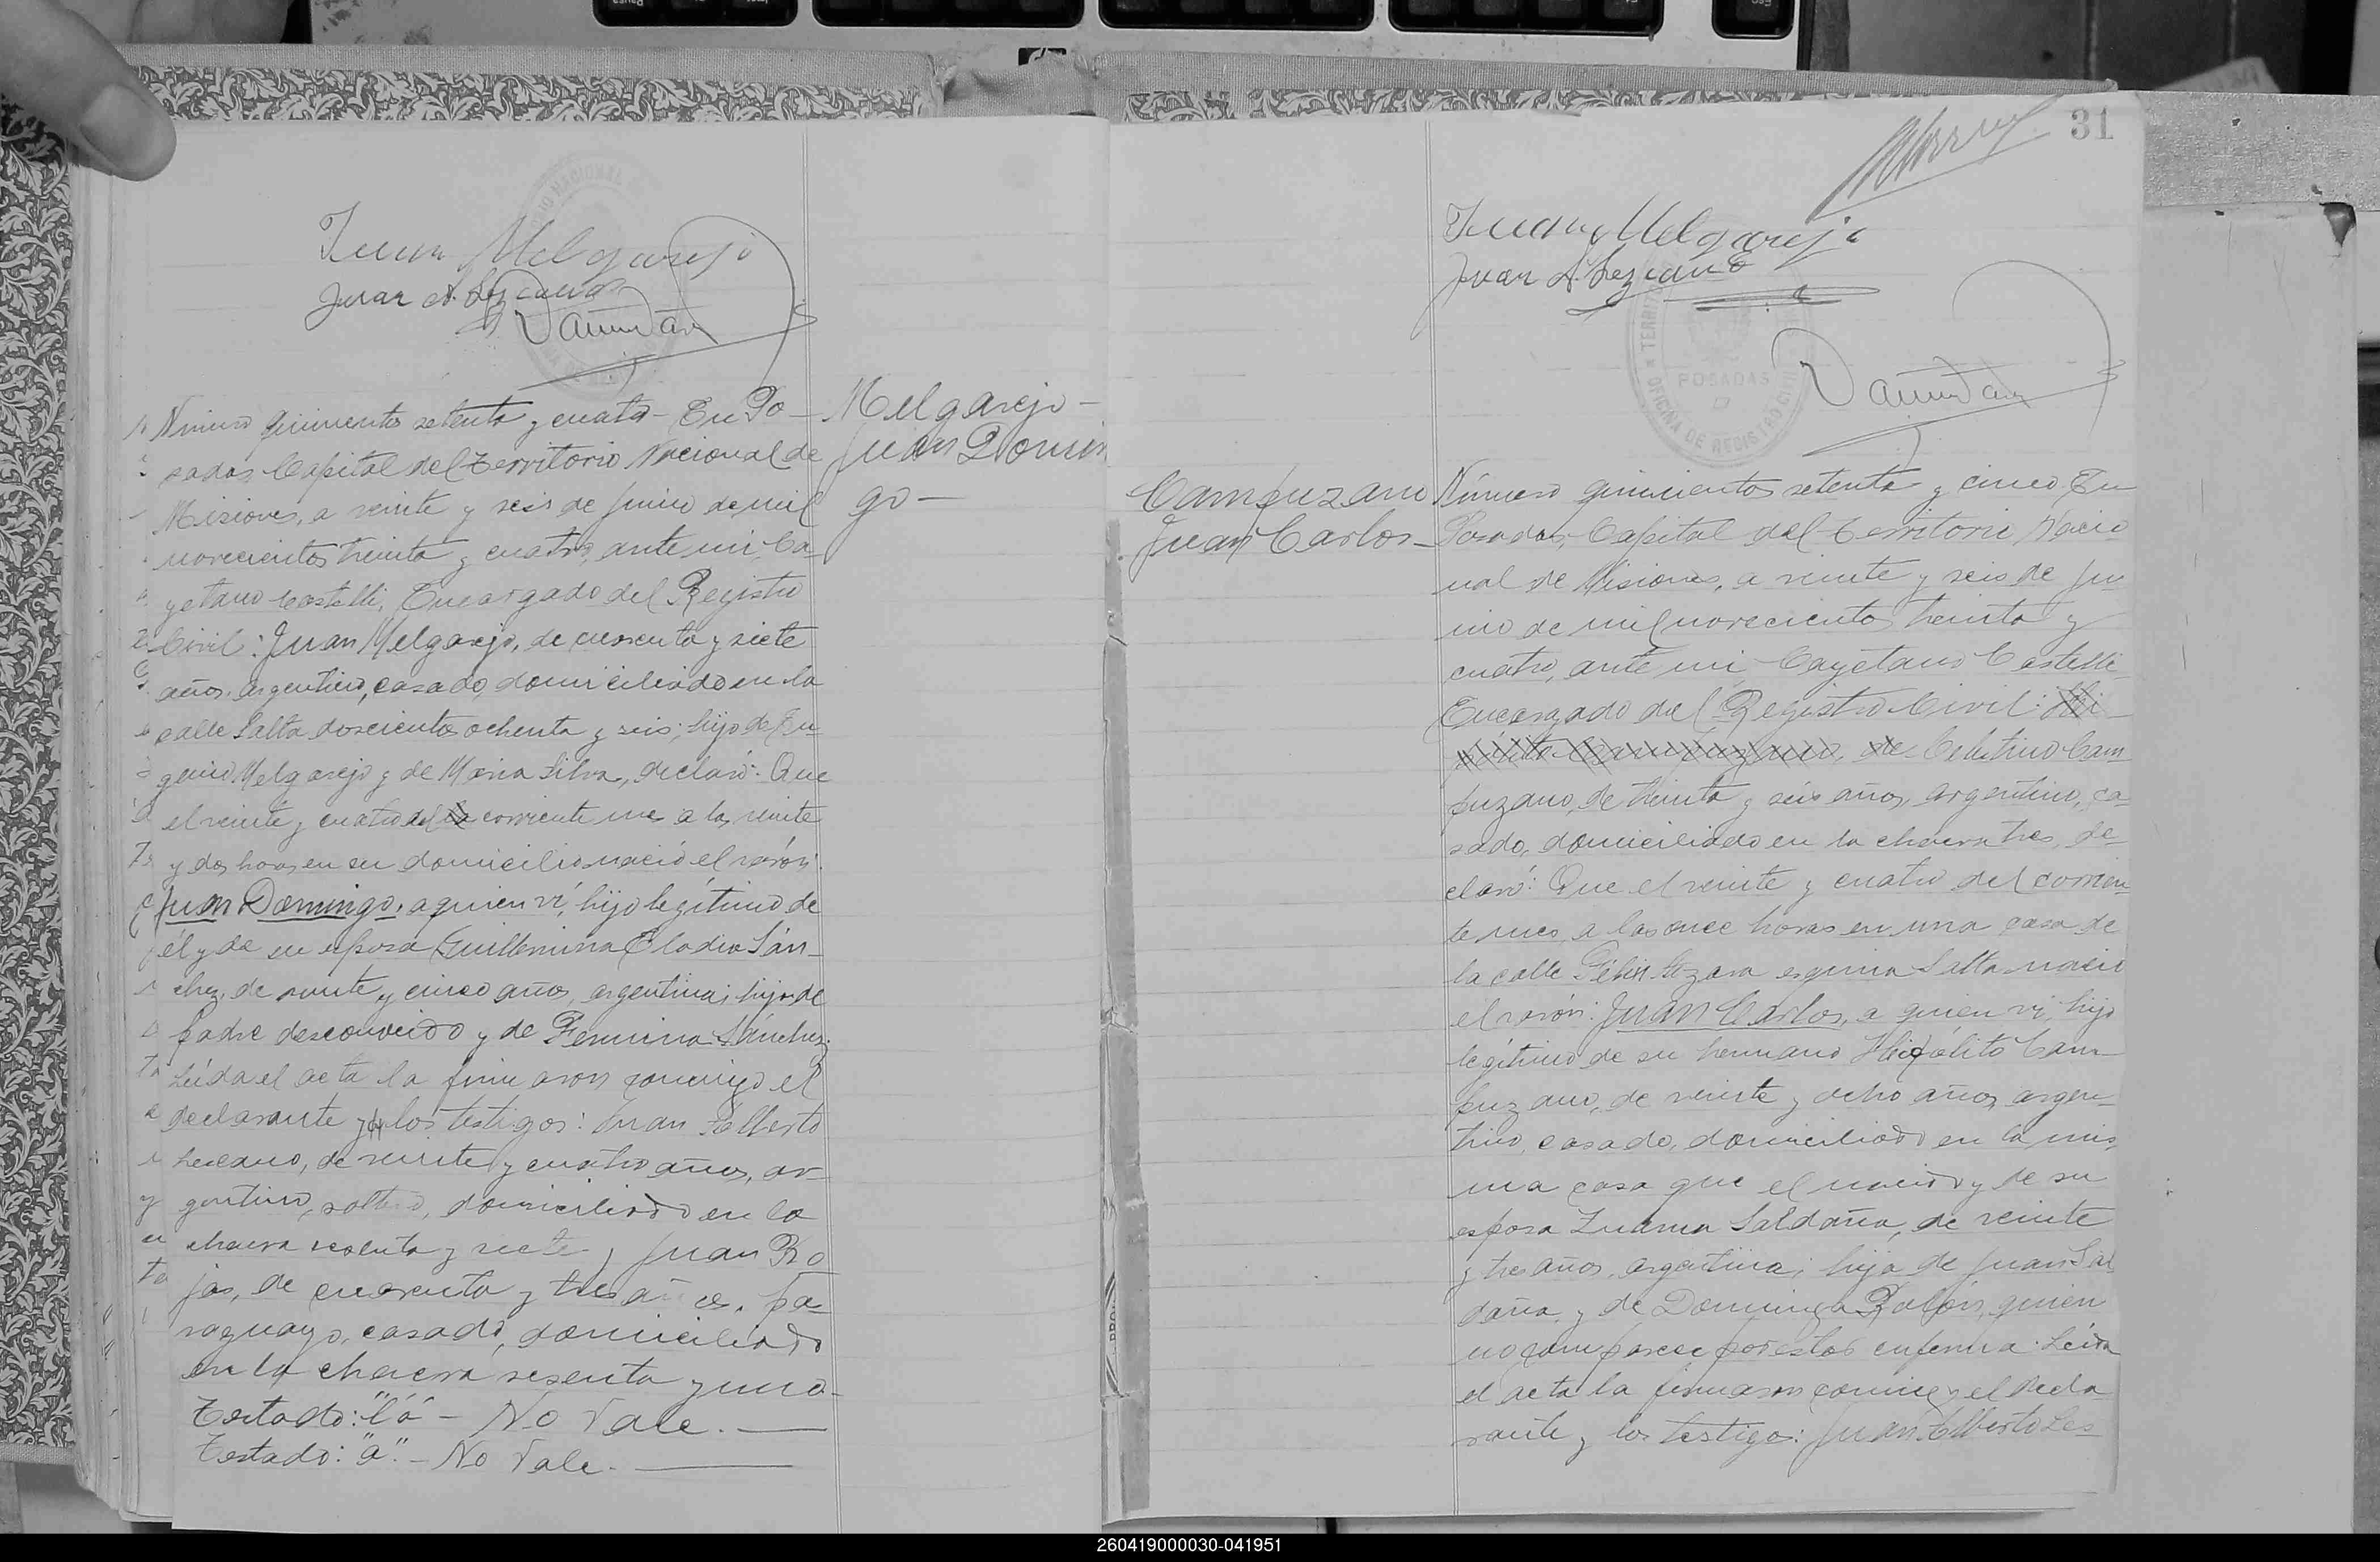 Juan Melgarejo
Juan A. Lezcano
Número quinientos setenta y cuatro - En Po-
sadas, Capital del Territorio Nacional de
Misiones, a veinte y seis de Junio de mil
novecientos treinta y cuatro, ante mi, Ca-
yetano Castelli, Encargado del Registro
Civil: Juan Melgarejo, de cuarenta y siete
años, argentino, casado, domiciliado en la
calle Salta doscientos ochenta y seis; hijo de Eu-
genio Melgarejo y de Maria Silva, declaró: Que
el veinte y cuatro del la corriente mes a las veinte
y dos horas en su domicilio nació el varón:
Juan Domingo, a quien vi, hijo legítimo de
él y de su esposa Guillermina Eladia Sán-
chez, de veinte y cinco años, argentina; hija de
padre desconocido y de Fermina Sánchez;
Leída el acta la firmaron conmigo el
declarante y los testigos: Juan Alberto
Lescano, de veinte y cuatro años, ar-
gentino, soltero, domiciliado en la
chacra sesenta y siete y Juan Ro
jas, de cuarenta y tres años, pa-
raguayo, casado, domiciliado
en la chacra sesenta y uno-
Testado: "la" - No Vale.
Testado: "a". - No Vale.
Melgarejo -
Juan Domin
go -
31
Juan Melgarejo
Juan A. Lezcano
POSADAS
OFICINA DE REGISTRO CIVIL
Campuzano
Juan Carlos
Número quinientos setenta y cinco. En
Posadas, Capital del Territorio Nacio
nal de Misiones, a veinte y seis de Ju
nio de mil novecientos treinta y
cuatro, ante mi, Cayetano Castelli,
Encargado del Registro Civil: Hi
pólito Campuzano, de Celestino Cam
puzano, de treinta y seis años, argentino, ca-
sado, domiciliado en la chacra tres, de-
claró: Que el veinte y cuatro del corrien-
te mes, a las once horas en una casa de
la calle Félix Azara esquina Salta nació
el varón: Juan Carlos, a quien vi, hijo
legítimo de su hermano Hipólito Cam-
puzano, de veinte y ocho años, argen-
tino, casado, domiciliado en la mis
ma casa que el nacido y de su
esposa Zulma Saldaña, de veinte
y tres años, argentina; hija de Juan Sal
daña, y de Dominga Rolón, quien
no comparece por estar enferma. Leída
el acta la firmaron conmigo el decla
rante y los testigos: Juan Alberto Les